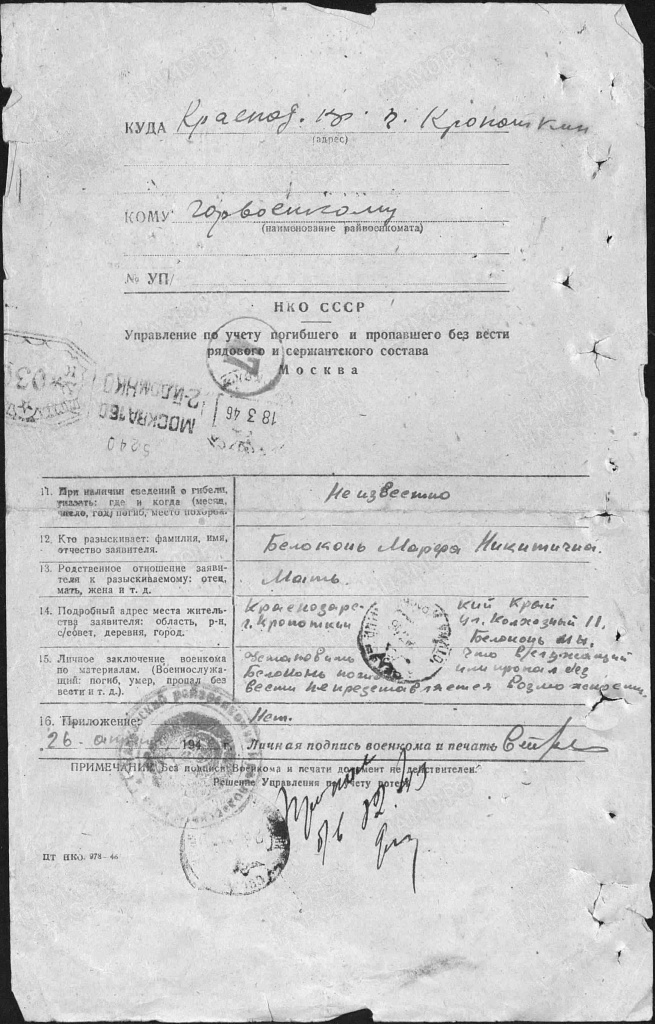 КУДА Краснод. кр. г. Кропоткин
(адрес)
КОМУ Горвоенкому
(наименование райвоенкомата)
№ УП/
НКО СССР
Управление по учету погибшего и пропавшего без вести
рядового и сержантского состава
Москва
МОСКВА 160
18 3 46
5240
11. При наличии сведений о гибели,
указать: где и когда (месяц,
число, год) погиб, место похорон.
Неизвестно
12. Кто разыскивает: фамилия, имя,
отчество заявителя.
Белоконь Марфа Никитична.
13. Родственное отношение заяви-
теля к разыскиваемому: отец,
мать, жена и т. д.
Мать.
14. Подробный адрес места житель-
ства заявителя: область, р-н,
с/совет, деревня, город.
Краснодарс- кий Край
г. Кропоткин ул. Колхозный 11.
Белоконь М.Н.
15. Личное заключение военкома
по материалам. (Военнослужа-
щий: погиб, умер, пропал без
вести и т. д.).
Установить что в/служащий
Белоконь погиб или пропал без
вести не представляется возможности.
16. Приложение:
Нет.
26 194 г. Личная подпись военкома и печать
ПРИМЕЧАНИЕ: Без подписи Военкома и печати документ не действителен.
Решение Управления по учету потерь
Пропал
б/в
ЦТ НКО. 978—46